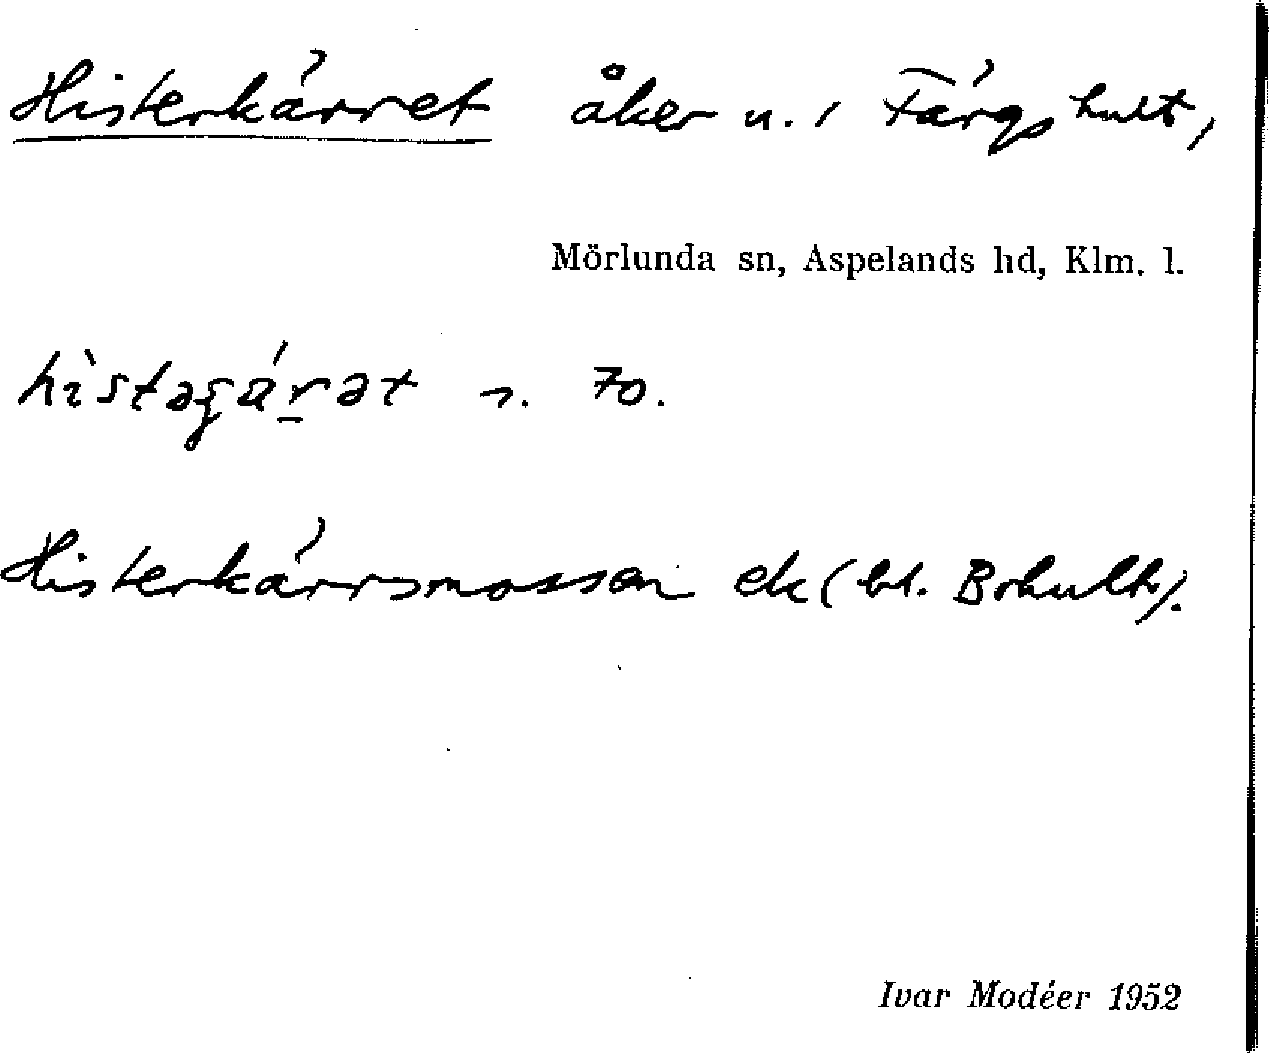 Histerkärret åker n. i Färgshult,
Mörlunda sn, Aspelands hd, Klm. l.
n. 70.
Histerkärrsmossen ek (bl. Bohult).
Ivar Modéer 1952